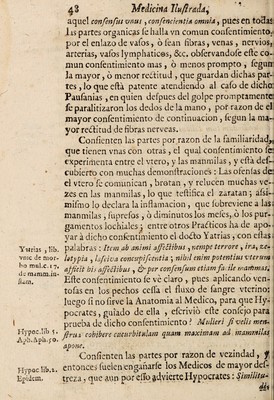 48 Medicina Ilustrada,
aquel consensus unus, consencientia omnia, pues en todas
las partes organicas se halla vn comun consentimiento,
por el enlazo de vasos, ò sean fibras, venas, nervios,
arterias, vasos lymphaticos, &c, observandose este co-
mun consentimiento mas, ò menos prompto, segun
la mayor, ò menor rectitud, que guardan dichas par-
tes, lo que està patente atendiendo al caso de dicho
Pausanias, en quien despues del golpe promptamente
se paralitizaron los dedos de la mano, por razon de el
mayor consentimiento de continuacion, segun la ma-
yor rectitud de fibras nerveas.
Consienten las partes por razon de la familiaridad,
que tienen vnas con otras, el qual consentimiento se
experimenta entre el vtero, y las manmilas, y està des-
cubierto con muchas demonstraciones: Las ofensas de
el vtero se comunican, brotan, y relucen muchas ve-
zes en las manmilas, lo que testifica el zaratan, assi-
mismo lo declara la inflamacion, que sobreviene a las
manmilas, supresos, ò diminutos los meses, ò los pur-
gamentos lochiales; entre otros Practicos ha de apo-
yar à dicho consentimiento el docto Yatrias, con estas
palabras: Item ab animi affectibus, nempe terrore, ira, ze-
lotypia, lasciva concupiscentia; nihil enim potentius vterum
afficit bis affectibus, & per consensum etiam fœ mammas.
Este consentimiento se vè claro, pues aplicando ven-
tosas en los pechos cessa el fluxo de sangre vterino;
luego si no sirve la Anatomia al Medico, para que Hy-
pocrates, guiado de ella, escriviò este consejo para
prueba de dicho consentimiento? Mulieri si velis men-
strua cohibere cucurbitulam quam maximam ad mammas
apone.
Consienten las partes por razon de vezindad, y
entonces suelen engañarse los Medicos de mayor des-
treza, que aun por esso advierte Hypocrates: Similitu-
Ytrias, lib.
vnic de mor-
bo mul. c. 17.
de mamm. in-
flam.
Hypoc. lib 5.
Aph. Aph. 50.
Hypoc lib. 2.
Epidem.